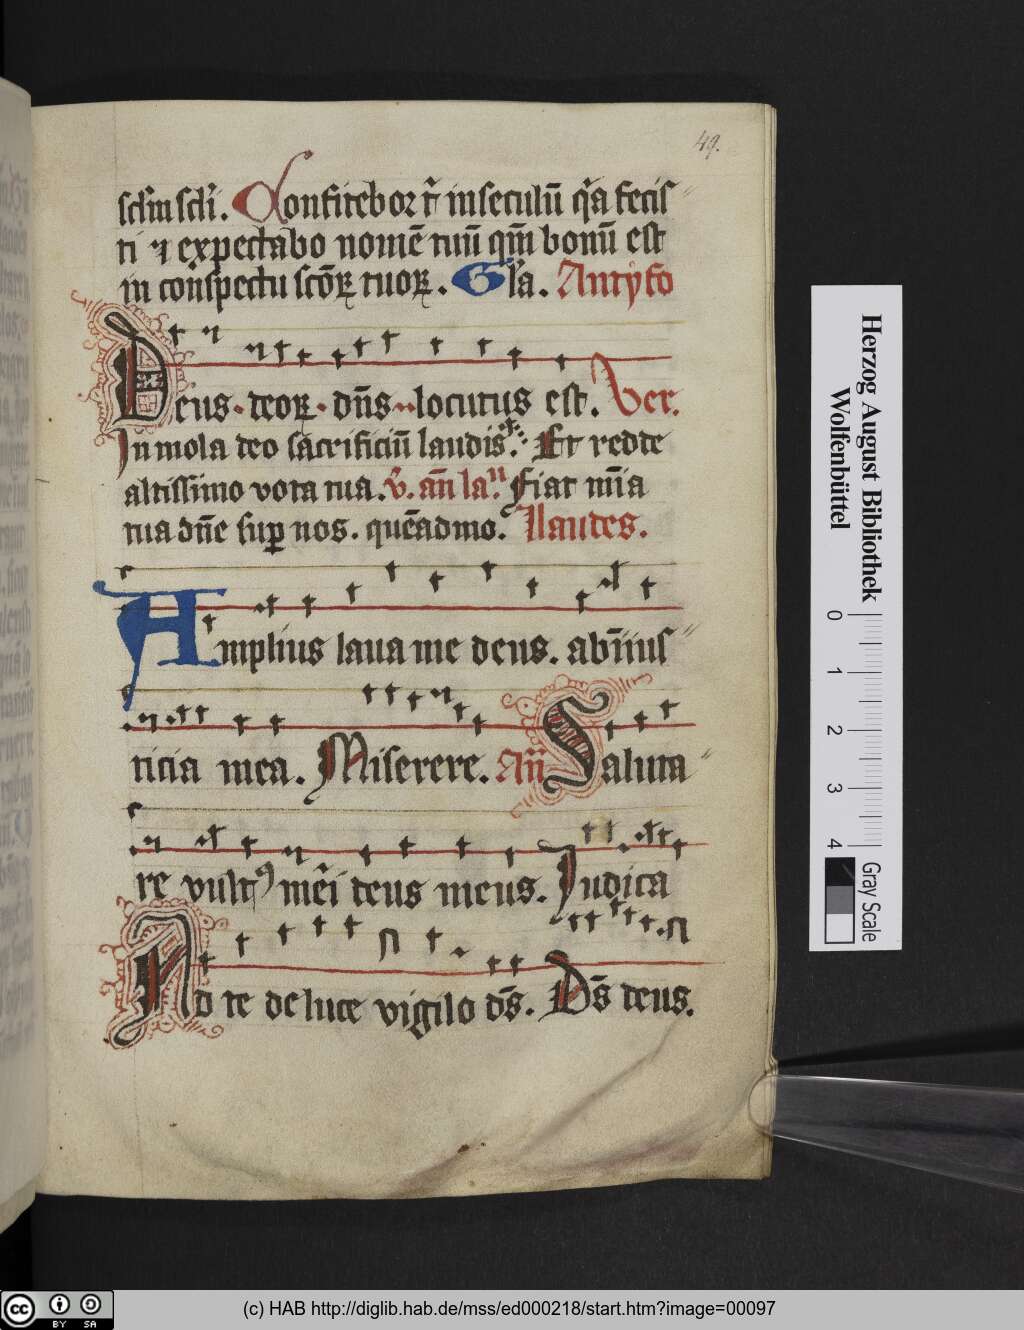 49.
sclm̄ scli̅. Confitebor t̉ in seculū q̉a fecis〃
ti ⁊ expectabo nomē tuū qm̄ bonū est
in cōspectu scōꝝ tuoꝝ. Gl̉a. Antyfo
Deus · deoꝝ · dn̄s ·· locutus est. Ver.
Inmola deo sacrificiū laudis. Et redde
altissimo vota tua. v̉. an̄ la. Fiat mīa
tua dn̄e suꝑ nos. quēadmo. Laudes.
Amplius laua me deus. ab iniusˮ
ticia mea. Miserere. An̄ Salutaˮ
re vultꝰ mei deus meus. Judica
Ad te de luce vigilo ds̄. Ds̄ deus.
Herzog August Bibliothek
Wolfenbüttel
0 1 2 3 4
Gray Scale
cc BY SA
(c) HAB http://diglib.hab.de/mss/ed000218/start.htm?image=00097